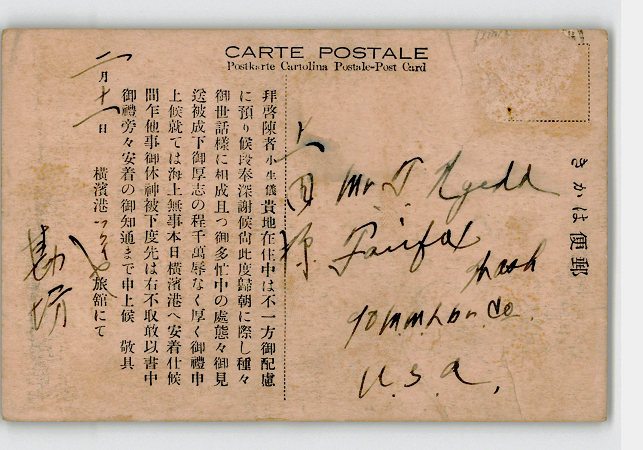 CARTE POSTALE
Postkarte Cartolina Postale-Post Card
きかは便郵
Mr. T.
Fairfax
Wash
U.S.A.
拜啓陳者小生儀貴地在住中は不一方御配慮
に預り候段奉深謝候尙此度歸朝に際し種々
御世話樣に相成且つ御多忙中の處態々御見
送被成下御厚志の程千萬辱なく厚く御禮申
上候就ては海上無事本日橫濱港へ安着仕候
間乍他事御休神被下度先は右不取敢以書中
御禮旁々安着の御知通まで申上候 敬具
二月十一日
橫濱港 旅館にて